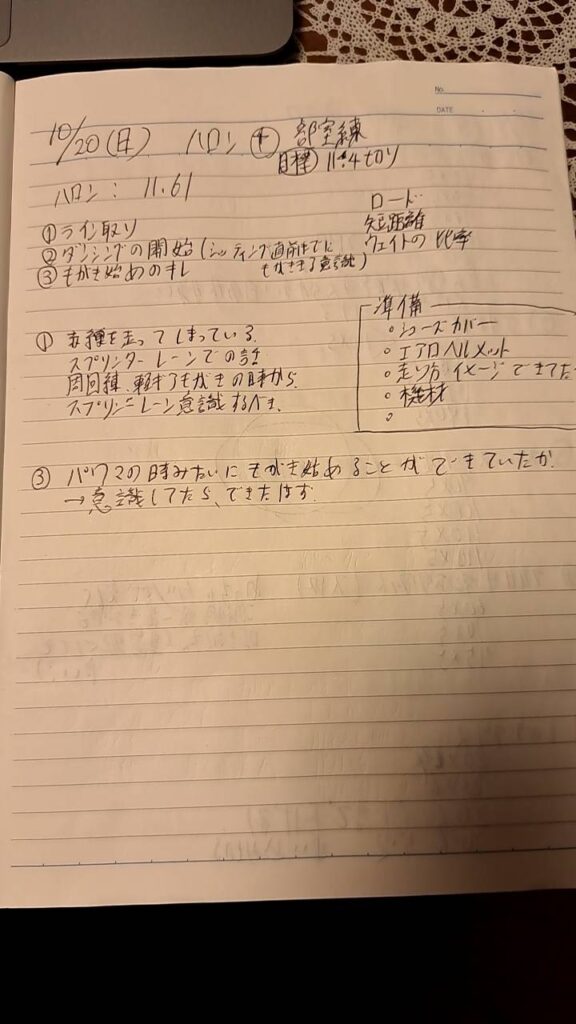 No.
DATE
10/20(日) ハロン ④ 部室練
目標 11.4切り
ハロン： 11.61
ロード
短距離
ウェイトの比率
①ライン取り
②ダンシングの開始(シッティング直前までに
もがききる意識)
③もがき始めのキレ
準備
○シューズカバー
○エアロヘルメット
○走り方イメージできてた
○機材
○
① 赤種を走ってしまっている
スプリンターレーンでの話
周回練、軽ギアもがきの時から
スプリンターレーン意識するべき。
③ パワマの時みたいにもがき始めることができていたか
→意識してたら、できたはず